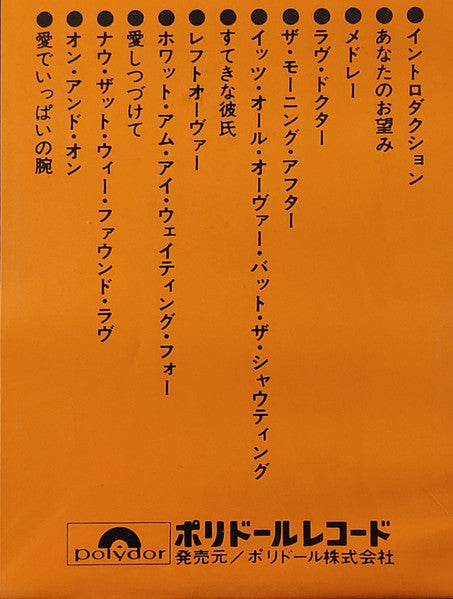 ●イントロダクション
●あなたのお望み
●メドレー
●ラヴ・ドクター
●ザ・モーニング・アフター
●イッツ・オール・オーヴァー・バット・ザ・シャウティング
●すてきな彼氏
●レフトオーヴァー
●ホワット・アム・アイ・ウェイティング・フォー
●愛しつづけて
●ナウ・ザット・ウィー・ファウンド・ラヴ
●オン・アンド・オン
●愛でいっぱいの腕
polydor
ポリドールレコード
発売元/ポリドール株式会社